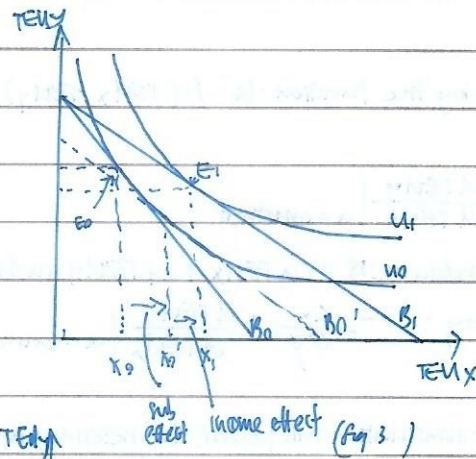 TEUy
E1
E0
U1
U0
B0 B0' B1
TEUX
X0 X0' X1
sub
effect income effect (fig 3)
TEUy